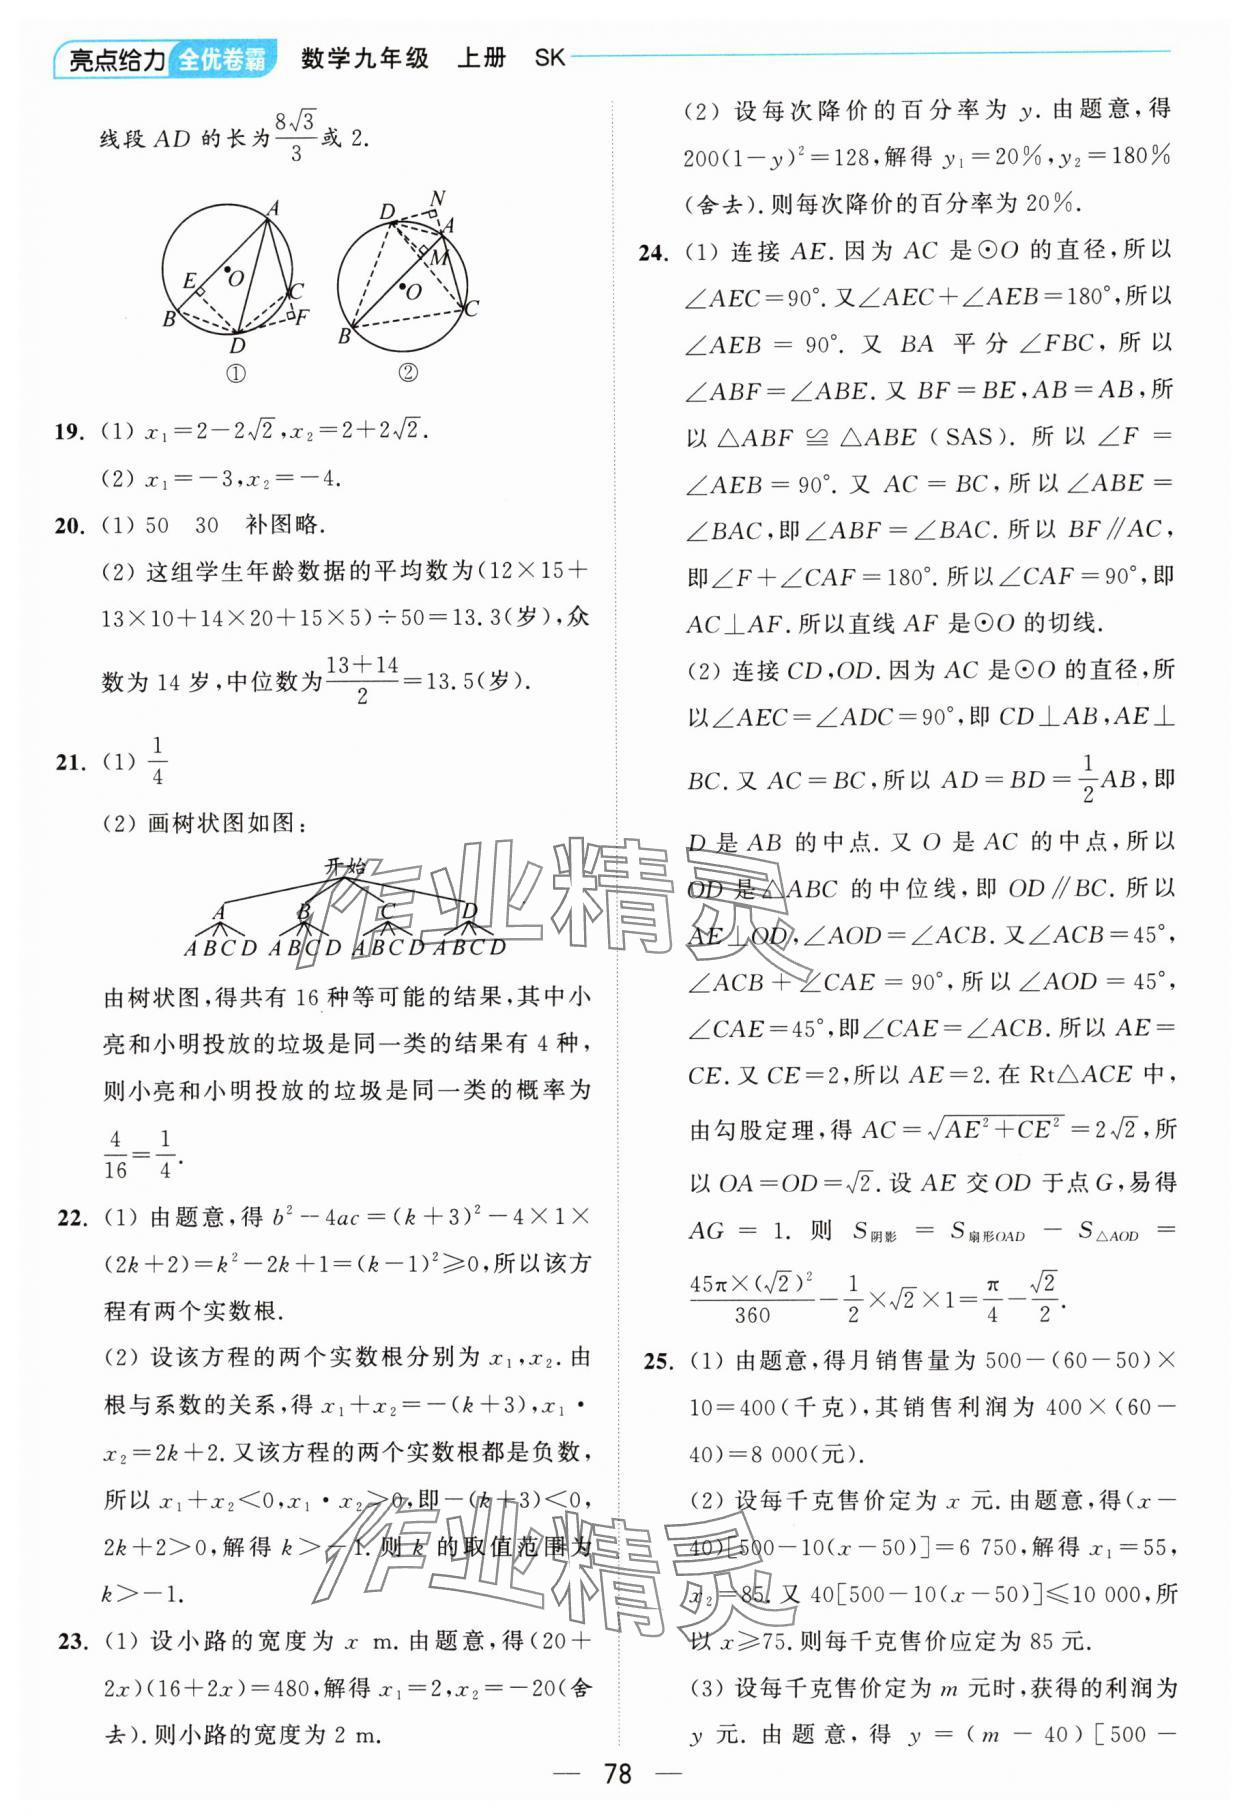 亮点给力 全优卷霸 数学九年级 上册 SK
线段 AD 的长为8√3/3或 2.
A E O B C F D ①
N D A M O C B ②
19. (1) x₁=2-2√2,x₂=2+2√2.
(2) x₁=-3,x₂=-4.
20. (1) 50 30 补图略.
(2) 这组学生年龄数据的平均数为(12×15+
13×10+14×20+15×5)÷50=13.3(岁),众
数为 14 岁,中位数为(13+14)/2=13.5(岁).
21. (1) 1/4
(2) 画树状图如图:
开始
A B C D
A B C D A B C D A B C D A B C D
由树状图,得共有 16 种等可能的结果,其中小
亮和小明投放的垃圾是同一类的结果有 4 种,
则小亮和小明投放的垃圾是同一类的概率为
4/16=1/4.
22. (1) 由题意,得 b²-4ac=(k+3)²-4×1×
(2k+2)=k²-2k+1=(k-1)²≥0,所以该方
程有两个实数根.
(2) 设该方程的两个实数根分别为 x₁,x₂.由
根与系数的关系,得 x₁+x₂=-(k+3),x₁·
x₂=2k+2.又该方程的两个实数根都是负数,
所以 x₁+x₂<0,x₁·x₂>0,即-(k+3)<0,
2k+2>0,解得 k>-1.则 k 的取值范围为
k>-1.
23. (1) 设小路的宽度为 x m.由题意,得(20+
2x)(16+2x)=480,解得 x₁=2,x₂=-20(舍
去).则小路的宽度为 2 m.
(2) 设每次降价的百分率为 y.由题意,得
200(1-y)²=128,解得 y₁=20%,y₂=180%
(舍去).则每次降价的百分率为 20%.
24. (1) 连接 AE.因为 AC 是⊙O 的直径,所以
∠AEC=90°.又∠AEC+∠AEB=180°,所以
∠AEB=90°.又 BA 平分∠FBC,所以
∠ABF=∠ABE.又 BF=BE,AB=AB,所
以△ABF≌△ABE(SAS).所以∠F=
∠AEB=90°.又 AC=BC,所以∠ABE=
∠BAC,即∠ABF=∠BAC.所以 BF∥AC,
即∠F+∠CAF=180°.所以∠CAF=90°,即
AC⊥AF.所以直线 AF 是⊙O 的切线.
(2) 连接 CD,OD.因为 AC 是⊙O 的直径,所
以∠AEC=∠ADC=90°,即 CD⊥AB,AE⊥
BC.又 AC=BC,所以 AD=BD=1/2AB,即
D 是 AB 的中点.又 O 是 AC 的中点,所以
OD 是△ABC 的中位线,即 OD∥BC.所以
AE⊥OD,∠AOD=∠ACB.又∠ACB=45°,
∠ACB+∠CAE=90°,所以∠AOD=45°,
∠CAE=45°,即∠CAE=∠ACB.所以 AE=
CE.又 CE=2,所以 AE=2.在 Rt△ACE 中,
由勾股定理,得 AC=√(AE²+CE²)=2√2,所
以 OA=OD=√2.设 AE 交 OD 于点 G,易得
AG=1.则 S阴影=S扇形OAD-S△AOD=
45π×(√2)²/360-1/2×√2×1=π/4-√2/2.
25. (1) 由题意,得月销售量为 500-(60-50)×
10=400(千克),其销售利润为 400×(60-
40)=8 000(元).
(2) 设每千克售价定为 x 元.由题意,得(x-
40)[500-10(x-50)]=6 750,解得 x₁=55,
x₂=85.又 40[500-10(x-50)]≤10 000,所
以 x≥75.则每千克售价应定为 85 元.
(3) 设每千克售价定为 m 元时,获得的利润为
y 元.由题意,得 y=(m-40)[500-
— 78 —
作业精灵
作业精灵